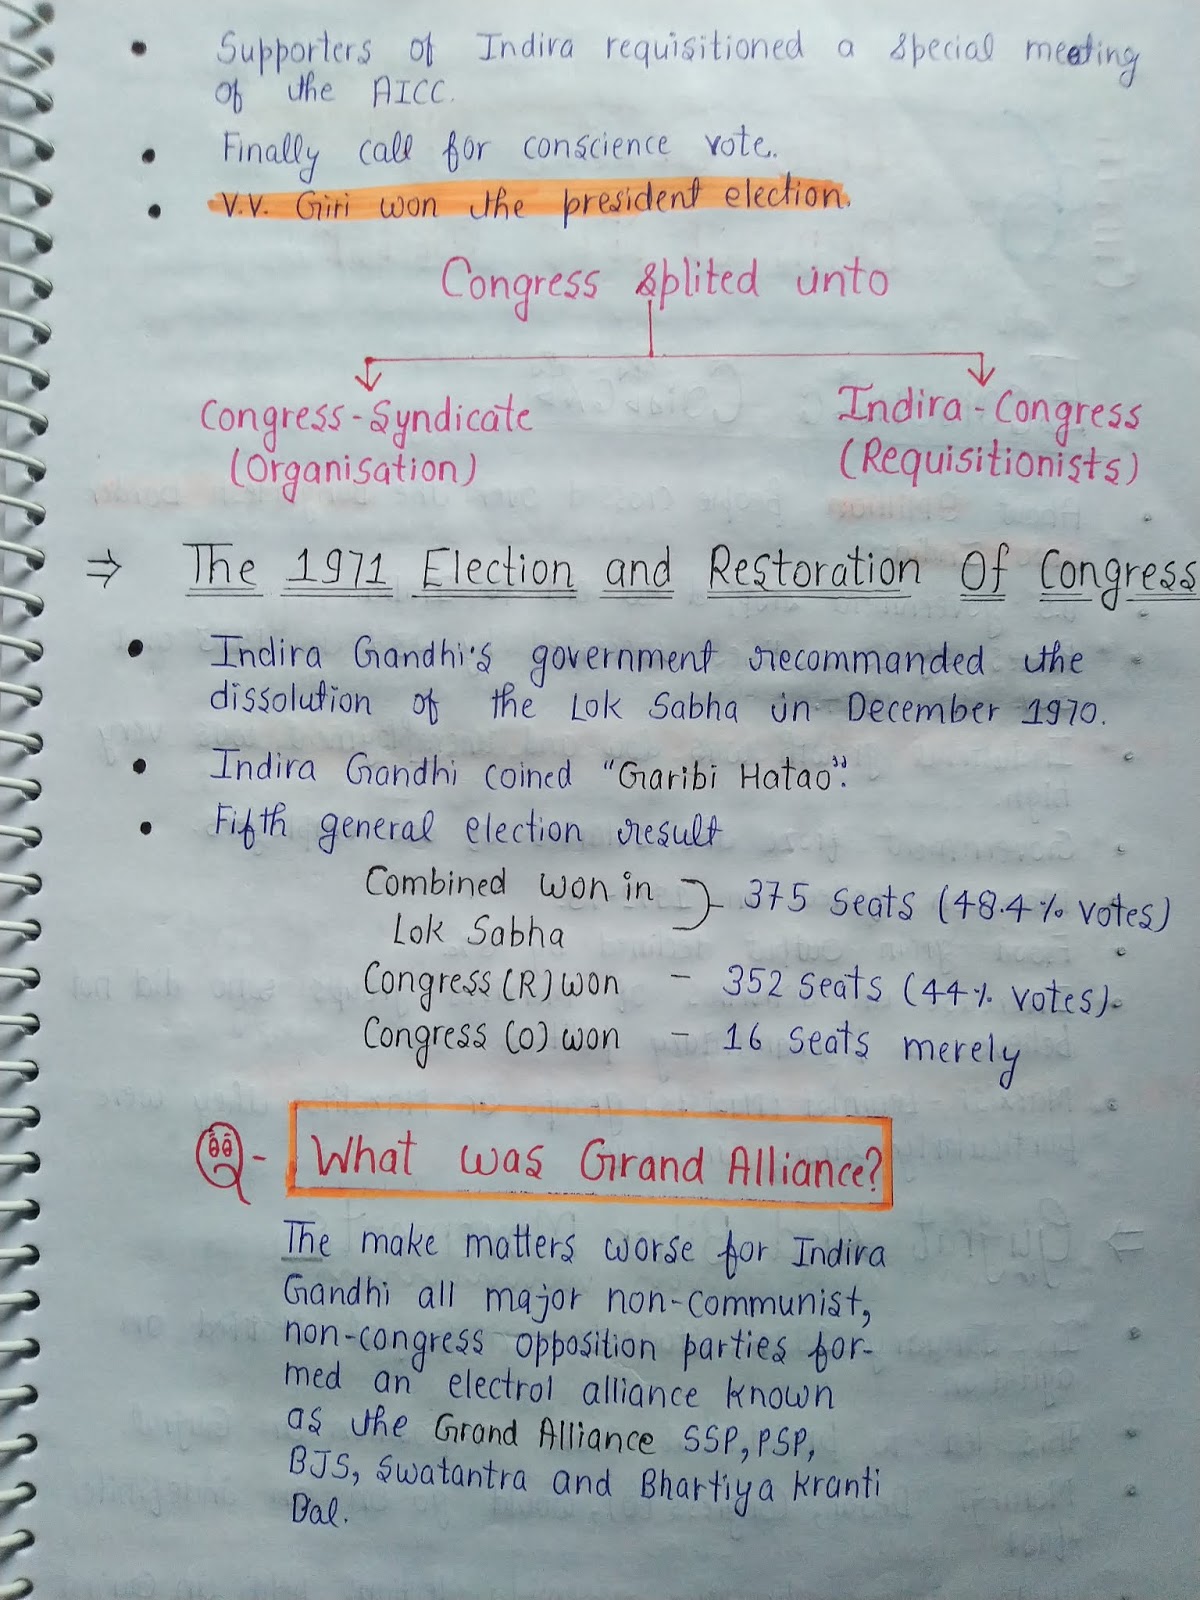 • Supporters of Indira requisitioned a special meeting
of the AICC.
• Finally call for conscience vote.
• V.V. Giri won the president election.
Congress splited into
Congress-Syndicate
(Organisation)
Indira-Congress
(Requisitionists)
⇒ The 1971 Election and Restoration Of Congress
• Indira Gandhi's government recommanded the
dissolution of the Lok Sabha in December 1970.
• Indira Gandhi coined "Garibi Hatao".
• Fifth general election result
Combined won in } - 375 Seats (48.4% votes)
Lok Sabha
Congress (R) won - 352 Seats (44% votes).
Congress (O) won - 16 Seats merely
Q - What was Grand Alliance?
The make matters worse for Indira
Gandhi all major non-communist,
non-congress opposition parties for-
med an electrol alliance known
as the Grand Alliance SSP, PSP,
BJS, Swatantra and Bhartiya Kranti
Dal.